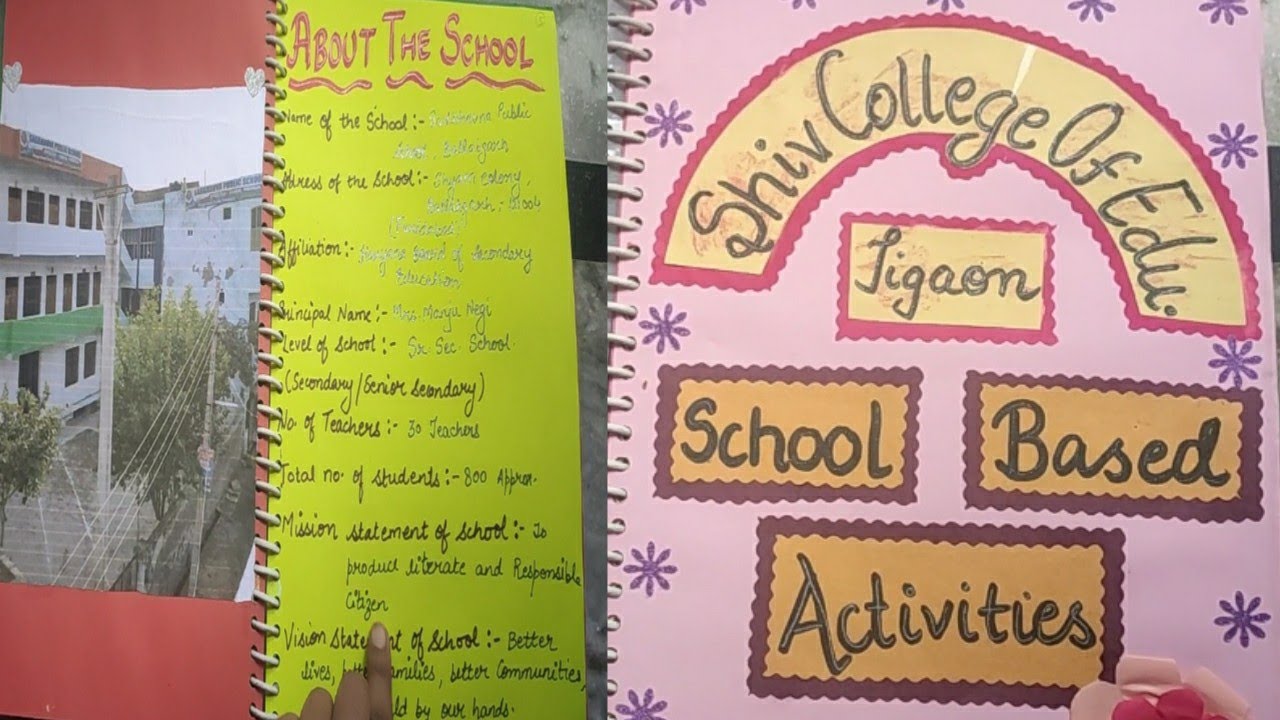 ABOUT THE SCHOOL
Name of the School:- Public
School, Ballabgarh
Adress of the School:- Colony,
Affiliation:- Haryana Board of Secondary
Education
Principal Name:- Mrs. Manju Negi
Level of School:- Sr. Sec. School
(Secondary/Senior Secondary)
No. of Teachers:- 30 Teachers
Total no. of students:- 800 Approx.
Mission statement of school:- To
produce literate and Responsible
Citizen
Vision statement of school:- Better
lives, better families, better Communities,
by our hands.
PUBLIC SCHOOL
Shiv College Of Edu.
Tigaon
School Based
Activities